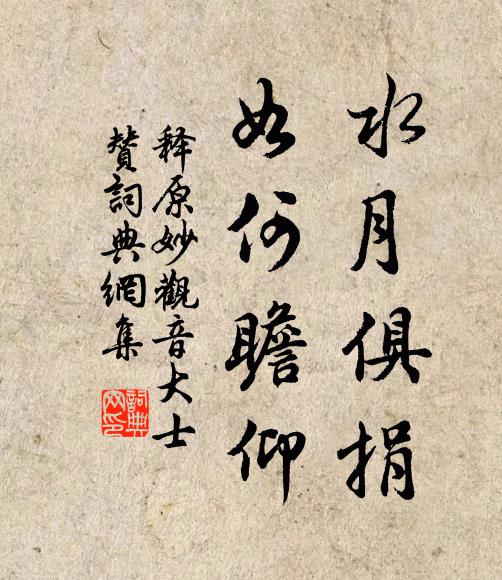 水月俱捐
如何瞻仰
释原妙觀音大士
贊詞典網集
詞典
网印